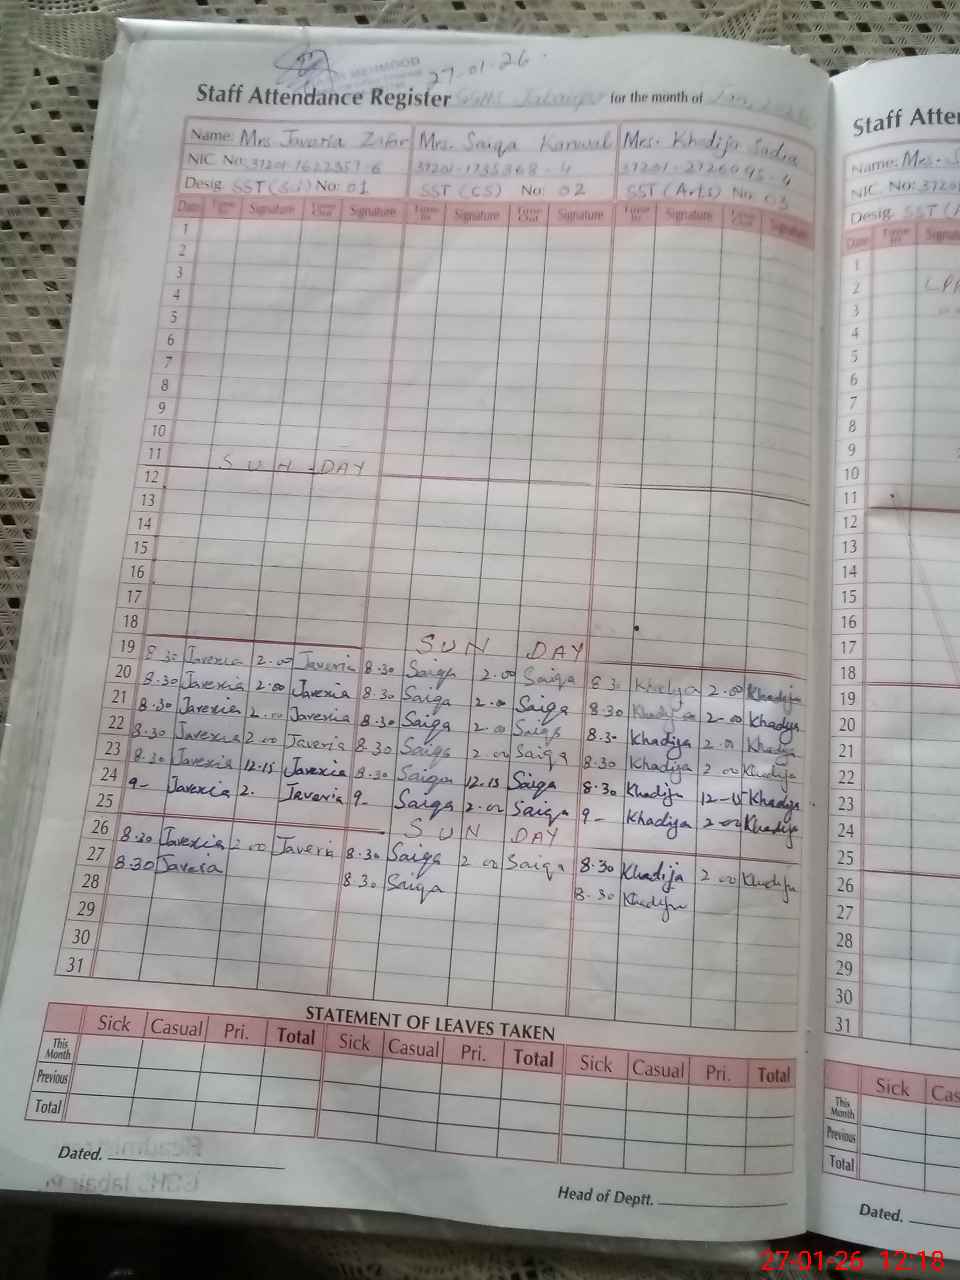 MEHMOOD
27-01-26
Staff Attendance Register for the month of
Name: Mrs Javeria Zafar Mrs. Saiqa Kanwal Mrs. Khadija Sadia
NIC. No: 37201-1622357-6 37201-1735368-4 37201-2726095-4
Desig. SST(Sci) No: 01 SST (CS) No: 02 SST (Arts) No 03
Date Time In Signature Time Out Signature Time In Signature Time Out Signature Time In Signature Time Out Signature
1
2
3
4
5
6
7
8
9
10
11 SUN-DAY
12
13
14
15
16
17
18 SUN DAY
19 8.30 Javeria 2.00 Javeria 8.30 Saiqa 2.00 Saiqa 8.30 Khadija 2.00 Khadija
20 8.30 Javeria 2.00 Javeria 8.30 Saiqa 2.00 Saiqa 8.30 Khadija 2-00 Khadija
21 8.30 Javeria 2.00 Javeria 8.30 Saiqa 2.00 Saiqa 8.30 Khadija 2.00 Khadija
22 8.30 Javeria 2.00 Javeria 8.30 Saiqa 2.00 Saiqa 8.30 Khadija 2.00 Khadija
23 8.30 Javeria 12.15 Javeria 8.30 Saiqa 12.15 Saiqa 8.30 Khadija 12-15 Khadija
24 9- Javeria 2. Javeria 9- Saiqa 2.00 Saiqa 9- Khadija 2-00 Khadija
25 SUN DAY
26 8.30 Javeria 2.00 Javeria 8.30 Saiqa 2.00 Saiqa 8.30 Khadija 2.00 Khadija
27 8.30 Javeria 8.30 Saiqa 8.30 Khadija
28
29
30
31
STATEMENT OF LEAVES TAKEN
Sick Casual Pri. Total Sick Casual Pri. Total Sick Casual Pri. Total
This Month
Previous
Total
Dated.
Head of Deptt.
Staff Atte
Name: Mrs.
NIC. No: 3720
Desig. SST
Date Time In
1
2
3
4
5
6
7
8
9
10
11
12
13
14
15
16
17
18
19
20
21
22
23
24
25
26
27
28
29
30
31
Sick Cas
This Month
Previous
Total
Dated.
27-01-26 12:18